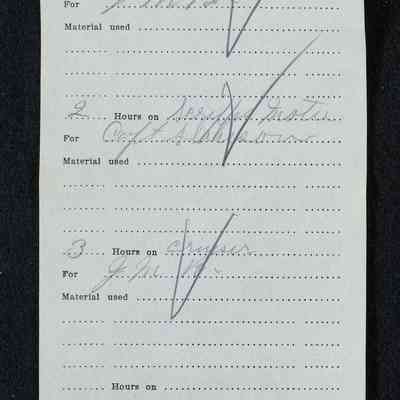 For
Material used
2 Hours on Scripps Motor
For Capt
Material used
3 Hours on Cruiser
For J. M.
Material used
Hours on